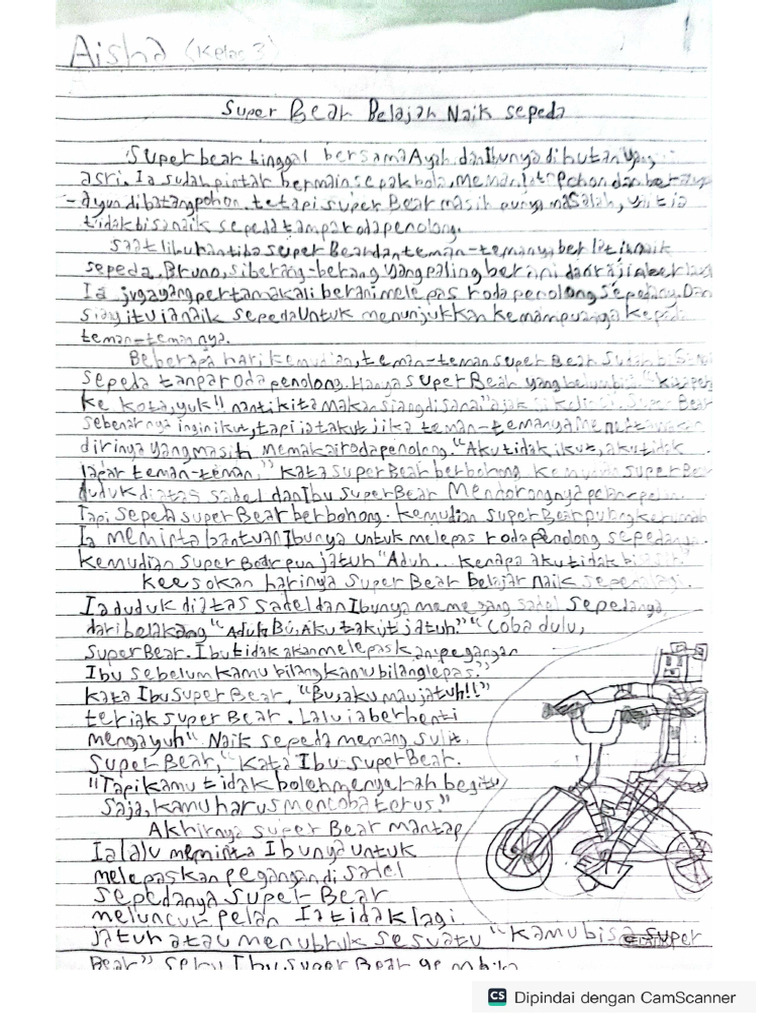 Aisha (Kelas 3)
Super Bear Belajar Naik sepeda
Superbear tinggal bersama Ayah dan Ibunya di hutan yang
asri. Ia sudah pintar bermain sepak bola, memanjat pohon dan berayun
-ayun di batang pohon. tetapi super Bear masih punya masalah, yaitu ia
tidak bisa naik sepeda tanpa roda penolong.
saat liburan tiba super Bear dan teman-temannya berlatih naik
sepeda. Bruno, si berang-berang yang paling berani dan rajin berlatih
Ia juga yang pertama kali berani melepas roda penolong sepedanya. Dan
siang itu ia naik sepeda untuk menunjukkan kemampuannya kepada
teman-temannya.
Beberapa hari kemudian, teman-teman super Bear sudah bisa naik
sepeda tanpa roda penolong. Hanya super Bear yang belum bisa. "kita pergi
ke kota, yuk!! nanti kita makan siang di sana" ajak si kelinci. Super Bear
sebenarnya ingin ikut, tapi ia takut jika teman-temannya
dirinya yang masih memakai roda penolong. "Aku tidak ikut, aku tidak
lapar teman-teman," kata super Bear berbohong. kemudian super Bear
duduk diatas sadel dan Ibu super Bear mendorongnya pelan-pelan.
Tapi sepeda super Bear berbohong. kemudian super Bear pulang kerumah
Ia meminta bantuan Ibunya untuk melepas roda penolong sepedanya.
kemudian super Bear pun jatuh "Aduh... kenapa aku tidak bisa sih."
keesokan harinya super Bear belajar naik sepeda lagi.
Ia duduk diatas sadel dan Ibunya memegang sadel sepedanya
dari belakang "Aduh Bu, Aku takut jatuh." "Coba dulu,
super Bear. Ibu tidak akan melepaskan pegangan
Ibu sebelum kamu bilang kamu bilang lepas."
kata Ibu super Bear, "Bu, aku mau jatuh!!"
teriak super Bear. Lalu ia berhenti
mengayuh" Naik sepeda memang sulit,
super Bear," kata Ibu super Bear.
"Tapi kamu tidak boleh menyerah begitu
saja, kamu harus mencoba terus."
Akhirnya super Bear mantap
Ia lalu meminta Ibunya untuk
melepaskan pegangan di sadel
sepedanya super Bear
meluncur pelan Ia tidak lagi
jatuh atau menubruk sesuatu "kamu bisa super
Bear" seru Ibu super Bear gembira
CS Dipindai dengan CamScanner